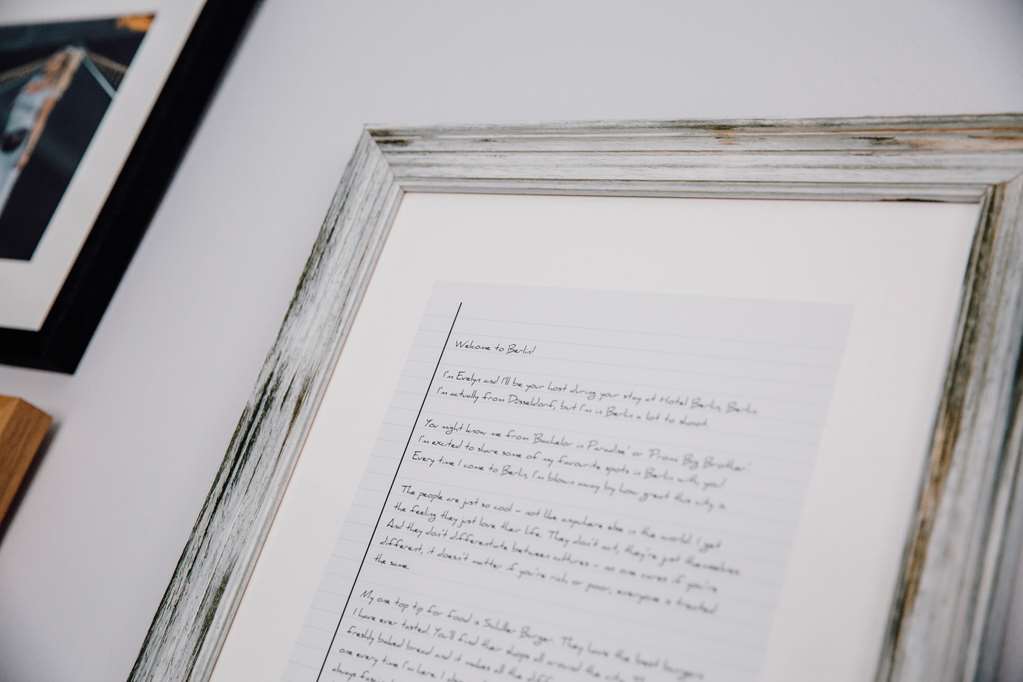 Welcome to Berlin!
I'm Evelyn and I'll be your host during your stay at Hotel Berlin, Berlin
I'm actually from Düsseldorf, but I'm in Berlin a lot to shoot.
You might know me from 'Bachelor in Paradise' or 'Prom Big Brother'
I'm excited to share some of my favourite spots in Berlin with you!
Every time I come to Berlin, I'm blown away by how great this city is
The people are just so cool - not like anywhere else in the world. I get
the feeling they just love their life. They don't act, they're just themselves
And they don't differentiate between cultures - no one cares if you're
different, it doesn't matter if you're rich or poor, everyone is treated
the same.
My one top tip for food is Schiller Burger. They have the best burgers
I have ever tasted. You'll find their shops all around the city,
freshly baked bread and it makes all the
one every time I'm here. I
always